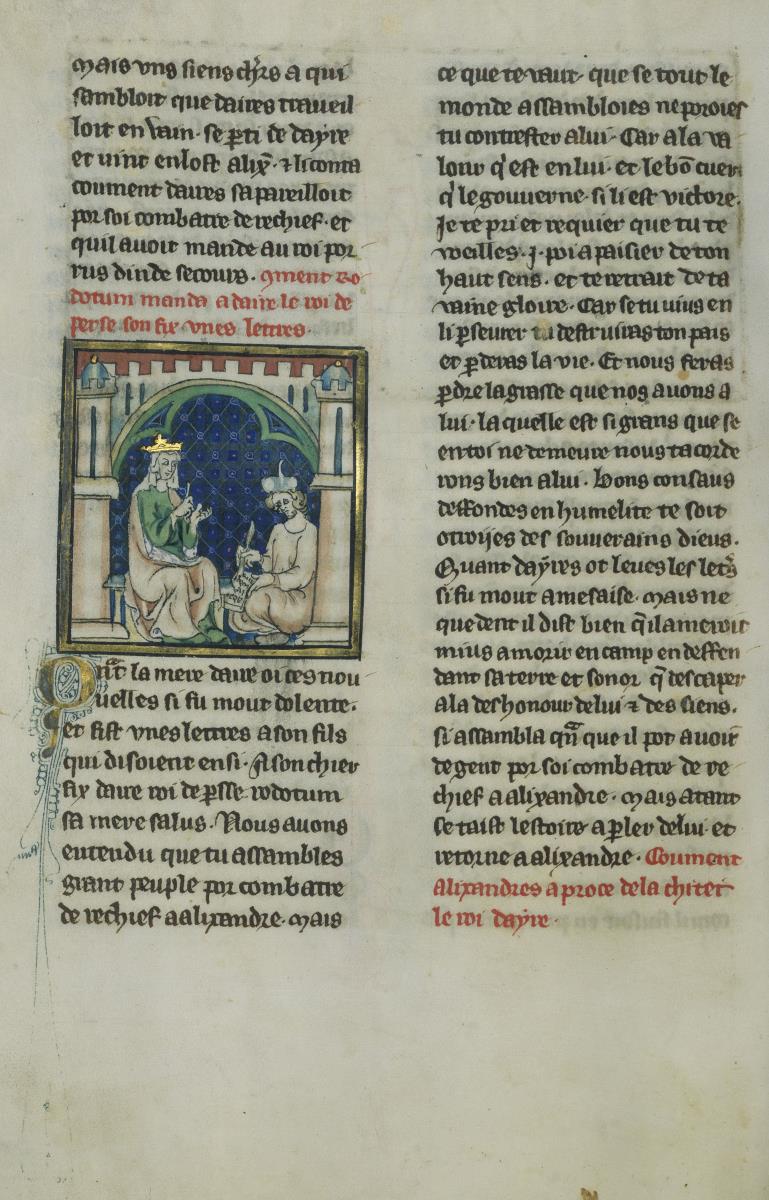 mais vns siens chrs a qui
sambloit que daires traueil
loit en vain · se parti de dayre
et uint en lost alix̄ · ⁊ li conta
coument daires sapareilloit
por soi combatre de rechief · et
quil auoit mande au roi por
rus dinde secours · 9ment ro
dotum manda a daire le roi de
perse son fix vnes lettres ·
Qnt la mere daire oi ces nou
uelles si fu mout dolente ·
et fist vnes lettres a son fils
qui disoient ensi · A son chier
fix daire roi de persse rodotum
sa mere salus · Nous auons
entendu que tu assambles
grant peuple por combatre
de rechief a alixandre · mais
ce que te vaut · que se tout le
monde assambloies ne poroies
tu contrester a lui · Car a la va
lour qi est en lui · et le bō cuer
qi le gouuerne · si li est victore ·
Je te pri et requier que tu te
voeilles · j · poi apaisier de ton
haut sens · et te retrait de ta
vaine gloire · Car se tu uius en
li perseurer tu destruiras ton pais
et perderas la vie · Et nous feras
perdre la grasse que nos auons a
lui · la quelle est si grans que se
en toi ne demeure nous tacorde
rons bien a lui · Bons consaus
deffondes en humelite te soit
otroijes des souuerains dieus ·
Quant dayres ot leues les letrs
si fu mout amesaise · mais ne
quedent il dist bien qil ameroit
mius a morir en camp en deffen
dant sa terre et sonor q̄ descaper
a la deshonour de lui ⁊ des siens ·
si assambla qnt que il pot auoir
de gent por soi combatre de re
chief a alixandre · mais atant
se taist lestoire a parler de lui · et
retorne a alixandre · Coument
alixandres aproce de la chitet
le roi dayre ·